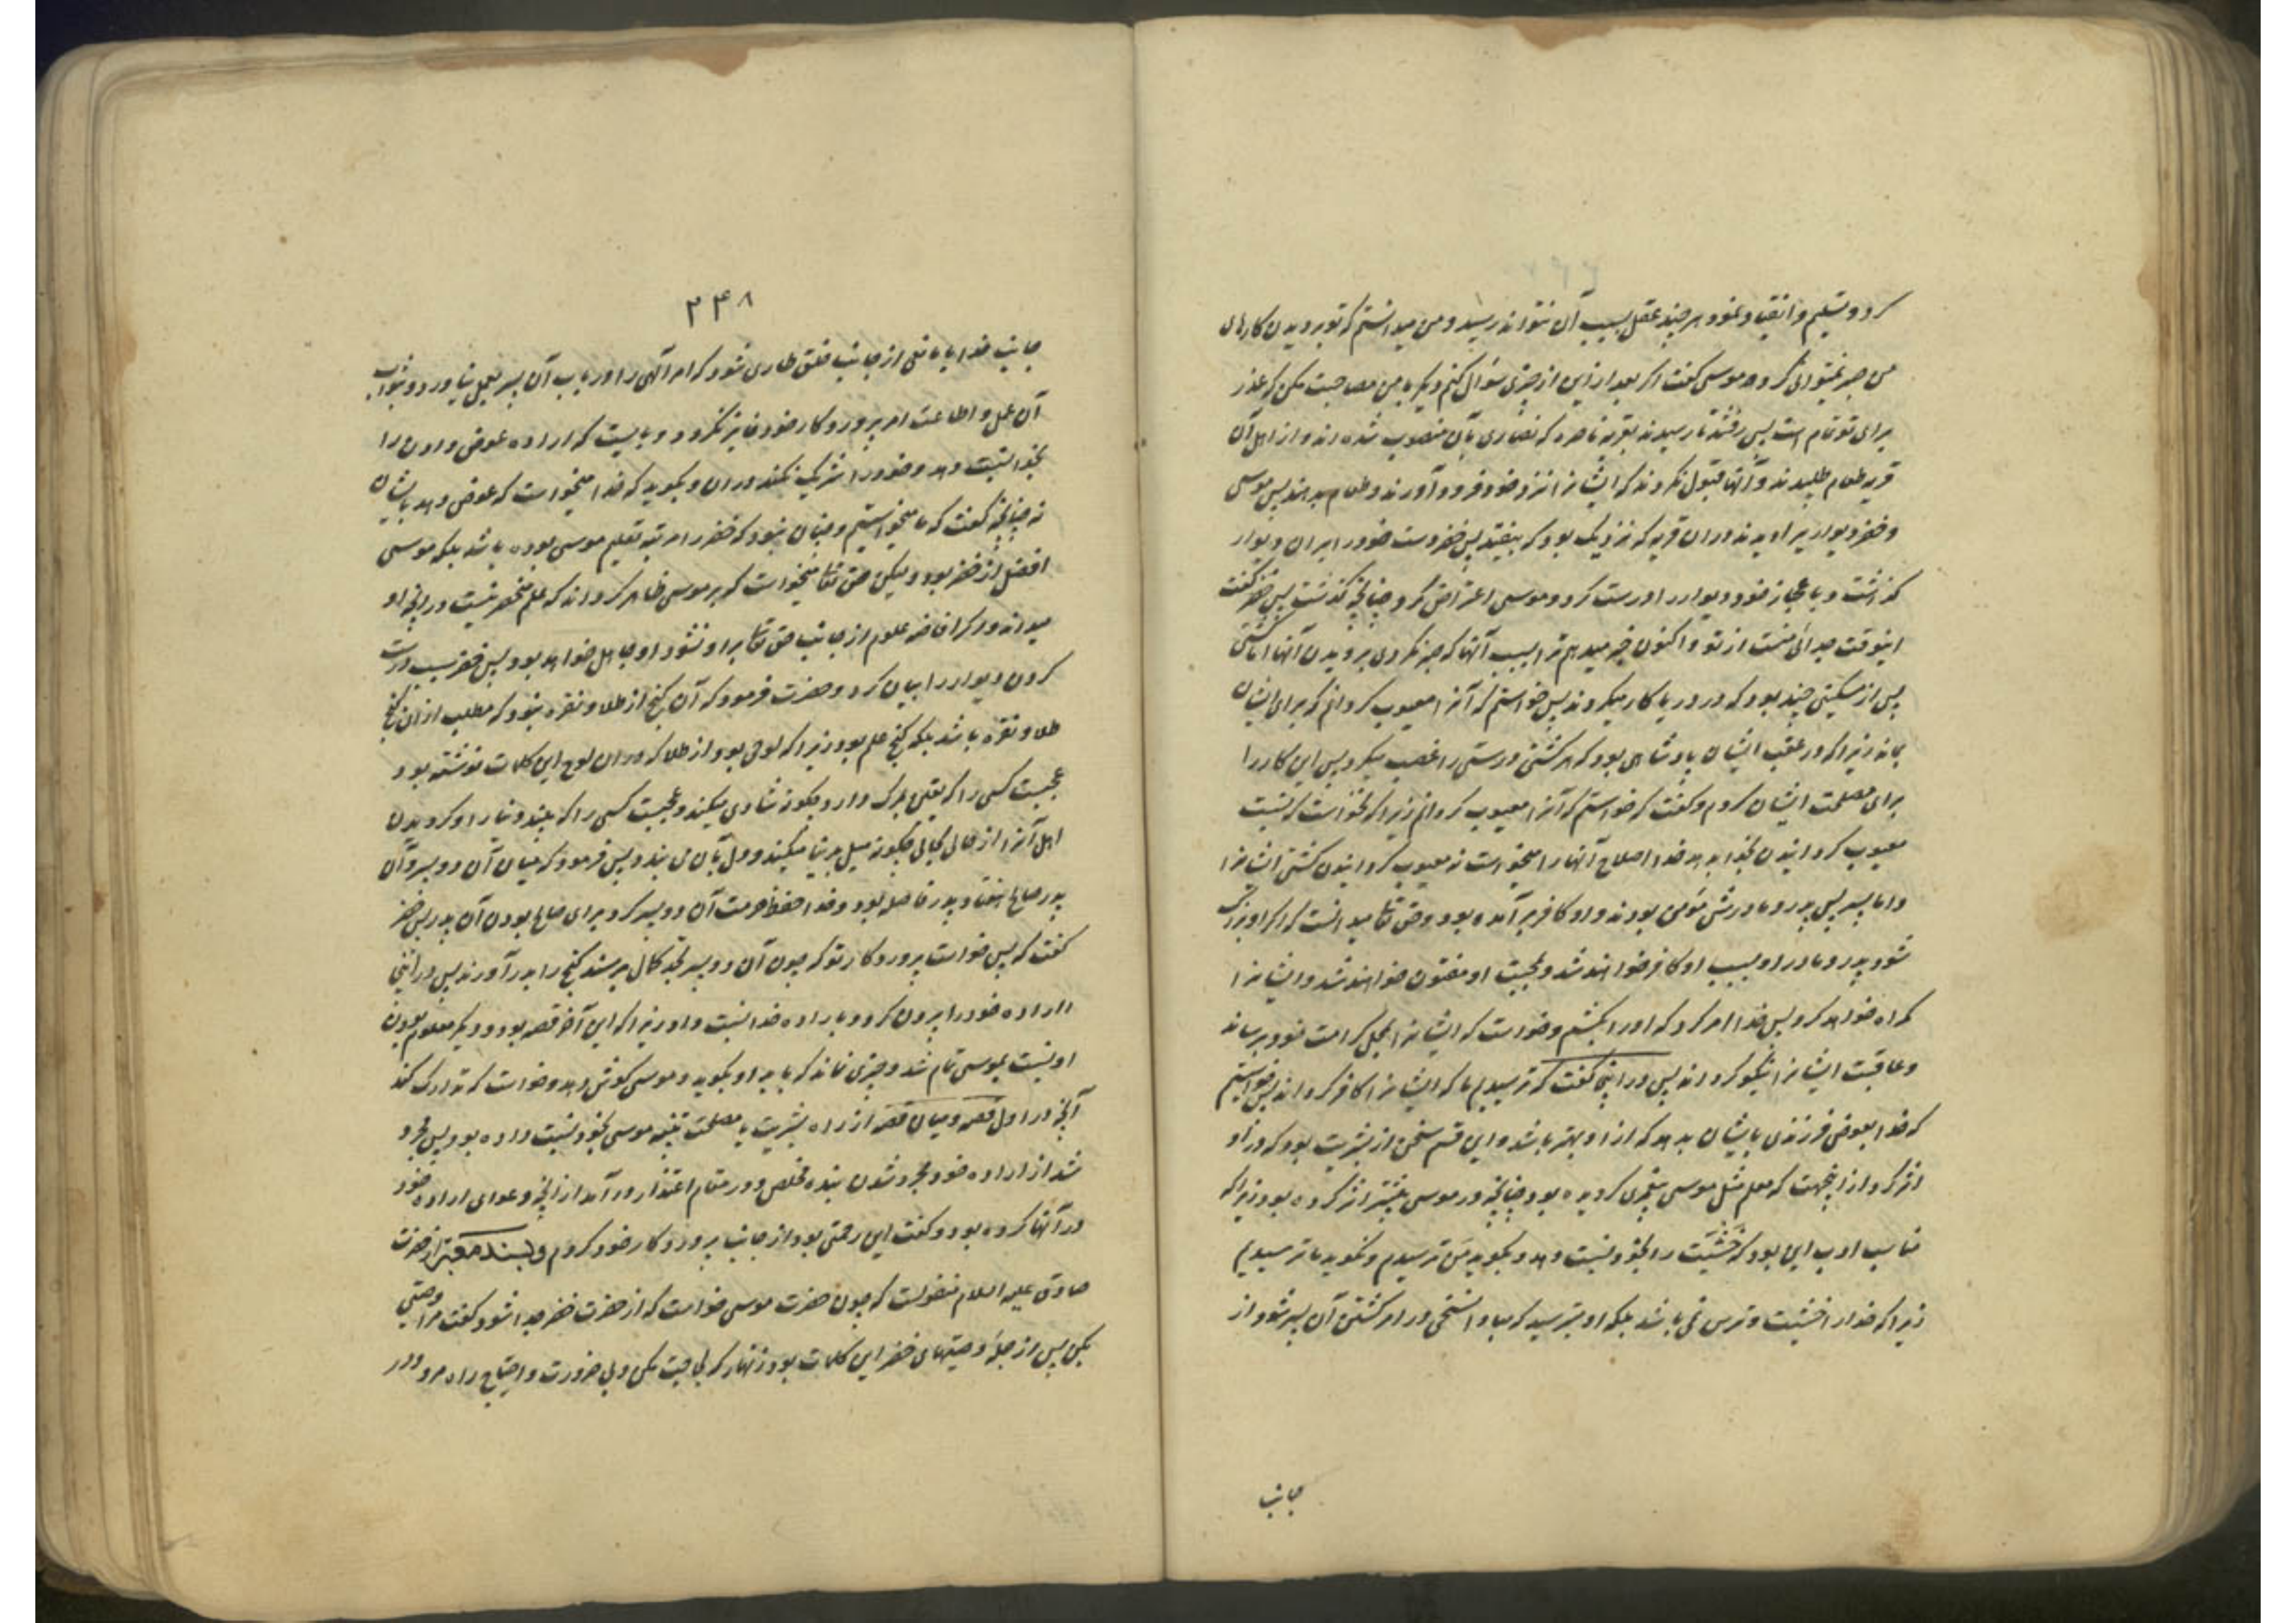 کرد و تسلیم و انقیاد نمود هر چند عقل بسبب آن نتواند رسید و من میدانستم که تو بر دیدن کارهای
من صبر نمیتوانی کرد موسی گفت اگر بعد ازین از چیزی سؤال کنم دیگر با من مصاحبت مکن که عذر
برای تو تمام است پس رفتند تا رسیدند بقریه ناصره که نصاری بآن منصوب شده اند و از اهل آن
قریه طعام طلبیدند و آنها قبول نکردند که ایشانرا نزد خود فرود آورند و طعام بدهند پس موسی
و خضر دیواریرا دیدند در ان قریه که نزدیک بود که بیفتد پس خضر دست خود را بر ان دیوار
گذاشت و باعجاز خود دیوار را درست کرد و موسی اعتراض کرد چنانچه گذشت پس خضر گفت
اینوقت جدائی منست از تو و اکنون خبر میدهم ترا بسبب آنها که صبر نکردی بر دیدن آنها اما کشتی
پس از مسکینی چند بود که در دریا کار میکردند پس خواستم که آنرا معیوب گردانم که برای ایشان
بماند زیرا که در عقب ایشان پادشاهی بود که هر کشتی درستی را غصب میکرد پس این کار را
برای مصلحت ایشان کردم و گفت که خواستم که آنرا معیوب گردانم زیرا که نخواست که نسبت
معیوب گردانیدن بخدا بدهد خدا اصلاح آنها را میخواست نه معیوب گردانیدن کشتی ایشانرا
و اما پسر پس پدر و مادرش مؤمن بودند و او کافر بر آمده بود و حق تعا میدانست که اگر او بزرگ
شود پدر و مادر او بسبب او کافر خواهند شد و بمحبت او مفتون خواهند شد و ایشانرا
گمراه خواهد کرد پس خدا امر کرد که او را بکشم و خواست که ایشانرا بمحل کرامت خود برساند
و عاقبت ایشانرا نیکو گرداند پس در اینجا گفت که ترسیدیم ما که ایشانرا کافر گرداند پس خواستیم
که خدا بعوض فرزندی بایشان بدهد که از او بهتر باشد و این قسم سخن از بشریت بود که در او
اثر کرد از اینجهت که معلم مثل موسی پیغمبری گردیده بود چنانچه در موسی بیشتر اثر کرده بود زیرا که
مناسب ادب این بود که خشیت را بخود نسبت دهد و بگوید من ترسیدم و نگوید ما ترسیدیم
زیرا که خدا را خشیت و ترس نمی باشد بلکه او بترسید که مبادا نسخی در امر کشتن آن پسر شود از
جانب
۲۴۸
جانب خدا یا مانعی از جانب خلق طاری شود که امر آلهی را در باب آن پسر بعمل نیاورد و بثواب
آن عمل و اطاعت امر پروردگار خود فایز نگردد و بایست که اراده عوض دادن را
بخدا نسبت دهد و خود را شریک نکند در ان و بگوید که خدا میخواست که عوض دهد بایشان
نه چنانچه گفت که ما میخواستیم و چنان نبود که خضر را مرتبه تعلیم موسی بوده باشد بلکه موسی
افضل از خضر بود و لیکن حق تعا میخواست که بر موسی ظاهر گرداند که علم منحصر نیست در آنچه او
میداند و اگر افاضه علوم از جانب حق تعا بر او نشود او جاهل خواهد بود پس خضر سبب درست
کردن دیوار را بیان کرد و حضرت فرمود که آن گنج از طلا و نقره نبود که مطلب از ان گنج
طلا و نقره باشد بلکه گنج علم بود زیرا که لوحی بود از طلا که در ان لوح این کلمات نوشته بود
عجبست کسی را که یقین بمرگ دارد چگونه شادی میکند و عجبست کسی را که بیند دنیا را و گردیدن
اهل آنرا از حالی بحالی چگونه میل بدنیا میکند و دل بآن می بندد پس فرمود که میان آن دو پسر و آن
پدر صالح هفتاد پدر فاصله بود و خدا حفظ حرمت آن دو پسر کرد برای صالح بودن آن پدر پس خضر
گفت که پس خواست پروردگار تو که چون آن دو پسر بحد کمال برسند گنج را بدر آورند پس در اینجا
اراده خود را بیرون کرد و باراده خدا نسبت داد زیرا که این آخر قصه بود و دیگر معلم بودن
او نسبت بموسی تمام شد و چیزی نماند که باید او بگوید و موسی گوش دهد و خواست که تدارک کند
آنچه در اول قصه و میان قصه از راه بشریت یا مصلحت تنبیه موسی بخود نسبت داده بود پس مجرد
شد از اراده خود مجرد شدن بنده مخلص و در مقام اعتذار در آمد از آنچه دعوای اراده خود
در آنها کرده بود و گفت این رحمتی بود از جانب پروردگار خود کردم و بسند معتبر از حضرت
صادق علیه السلام منقولست که چون حضرت موسی خواست که از حضرت خضر جدا شود گفت مرا وصیتی
بکن پس از جمله وصیتهای خضر این کلمات بود زنهار که لجاجت مکن و بی ضرورت و احتیاج راه مرو و در